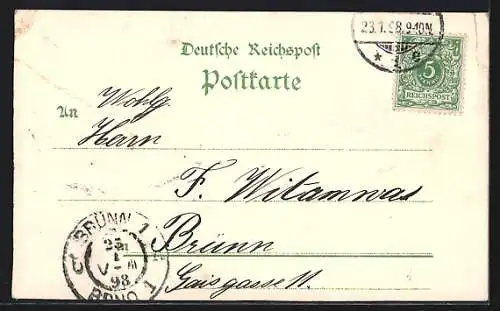 23.1.98.9-10N.
* 1 e
Deutsche Reichspost
Postkarte
5
REICHSPOST
An
Wohlg.
Herrn
F. Witamwas
Brünn
Gaisgasse 11.
BRÜNN 1
25
1
98
BRNO 1